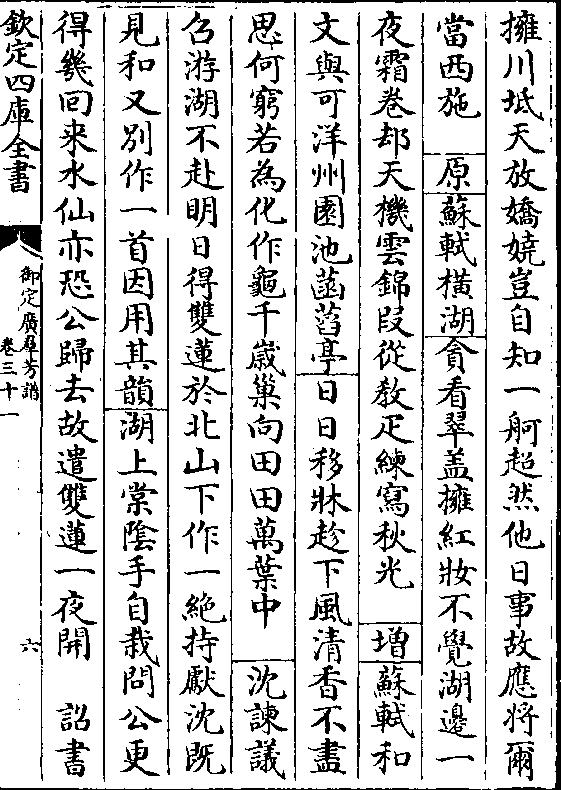 擁川坻天放嬌嬈豈自知一舸超然他日事故應將爾
當西施　原蘇軾横湖貪看翠盖擁紅妝不覺湖邊一
夜霜卷却天機雲錦段從教疋練寫秋光　増蘇軾和
文與可洋州園池菡萏亭日日移牀趁下風清香不盡
思何窮若為化作龜千歳巢向田田萬葉中　沈諫議
召游湖不赴明日得雙蓮於北山下作一絶持獻沈既
見和又别作一首因用其韻湖上棠陰手自栽問公更
得幾回来水仙亦恐公歸去故遣雙蓮一夜開　詔書
欽定四庫全書
御定廣羣芳譜
卷三十一
六